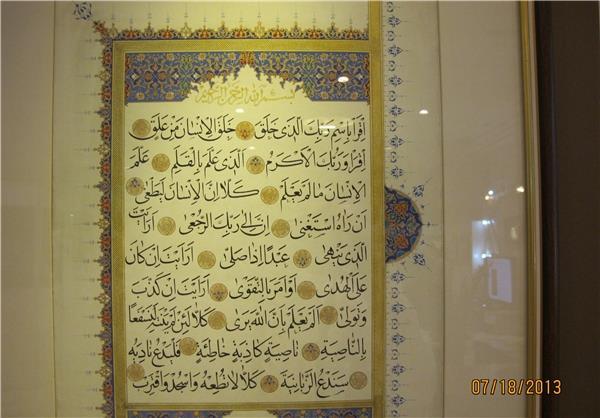 بسم الله الرحمن الرحیم
اِقرَأ بِاسمِ رَبِّكَ الَّذی خَلَقَ خَلَقَ الاِنسانَ مِن عَلَقٍ
اِقرَأ وَ رَبُّكَ الاَكرَمُ الَّذی عَلَّمَ بِالقَلَمِ عَلَّمَ
الاِنسانَ ما لَم یَعلَم كَلّا اِنَّ الاِنسانَ لَیَطغی
اَن رَاهُ استَغنی اِنَّ اِلی رَبِّكَ الرُّجعی اَرَاَیتَ
الَّذی یَنهی عَبدًا اِذا صَلّی اَرَاَیتَ اِن كانَ
عَلَی الهُدی اَو اَمَرَ بِالتَّقوی اَرَاَیتَ اِن كَذَّبَ
وَ تَوَلّی اَلَم یَعلَم بِاَنَّ اللهَ یَری كَلّا لَئِن لَم یَنتَهِ لَنَسفَعًا
بِالنّاصِیَةِ ناصِیَةٍ كاذِبَةٍ خاطِئَةٍ فَلیَدعُ نادِیَهُ
سَنَدعُ الزَّبانِیَةَ كَلّا لا تُطِعهُ وَ اسجُد وَ اقتَرِب
07/18/2013